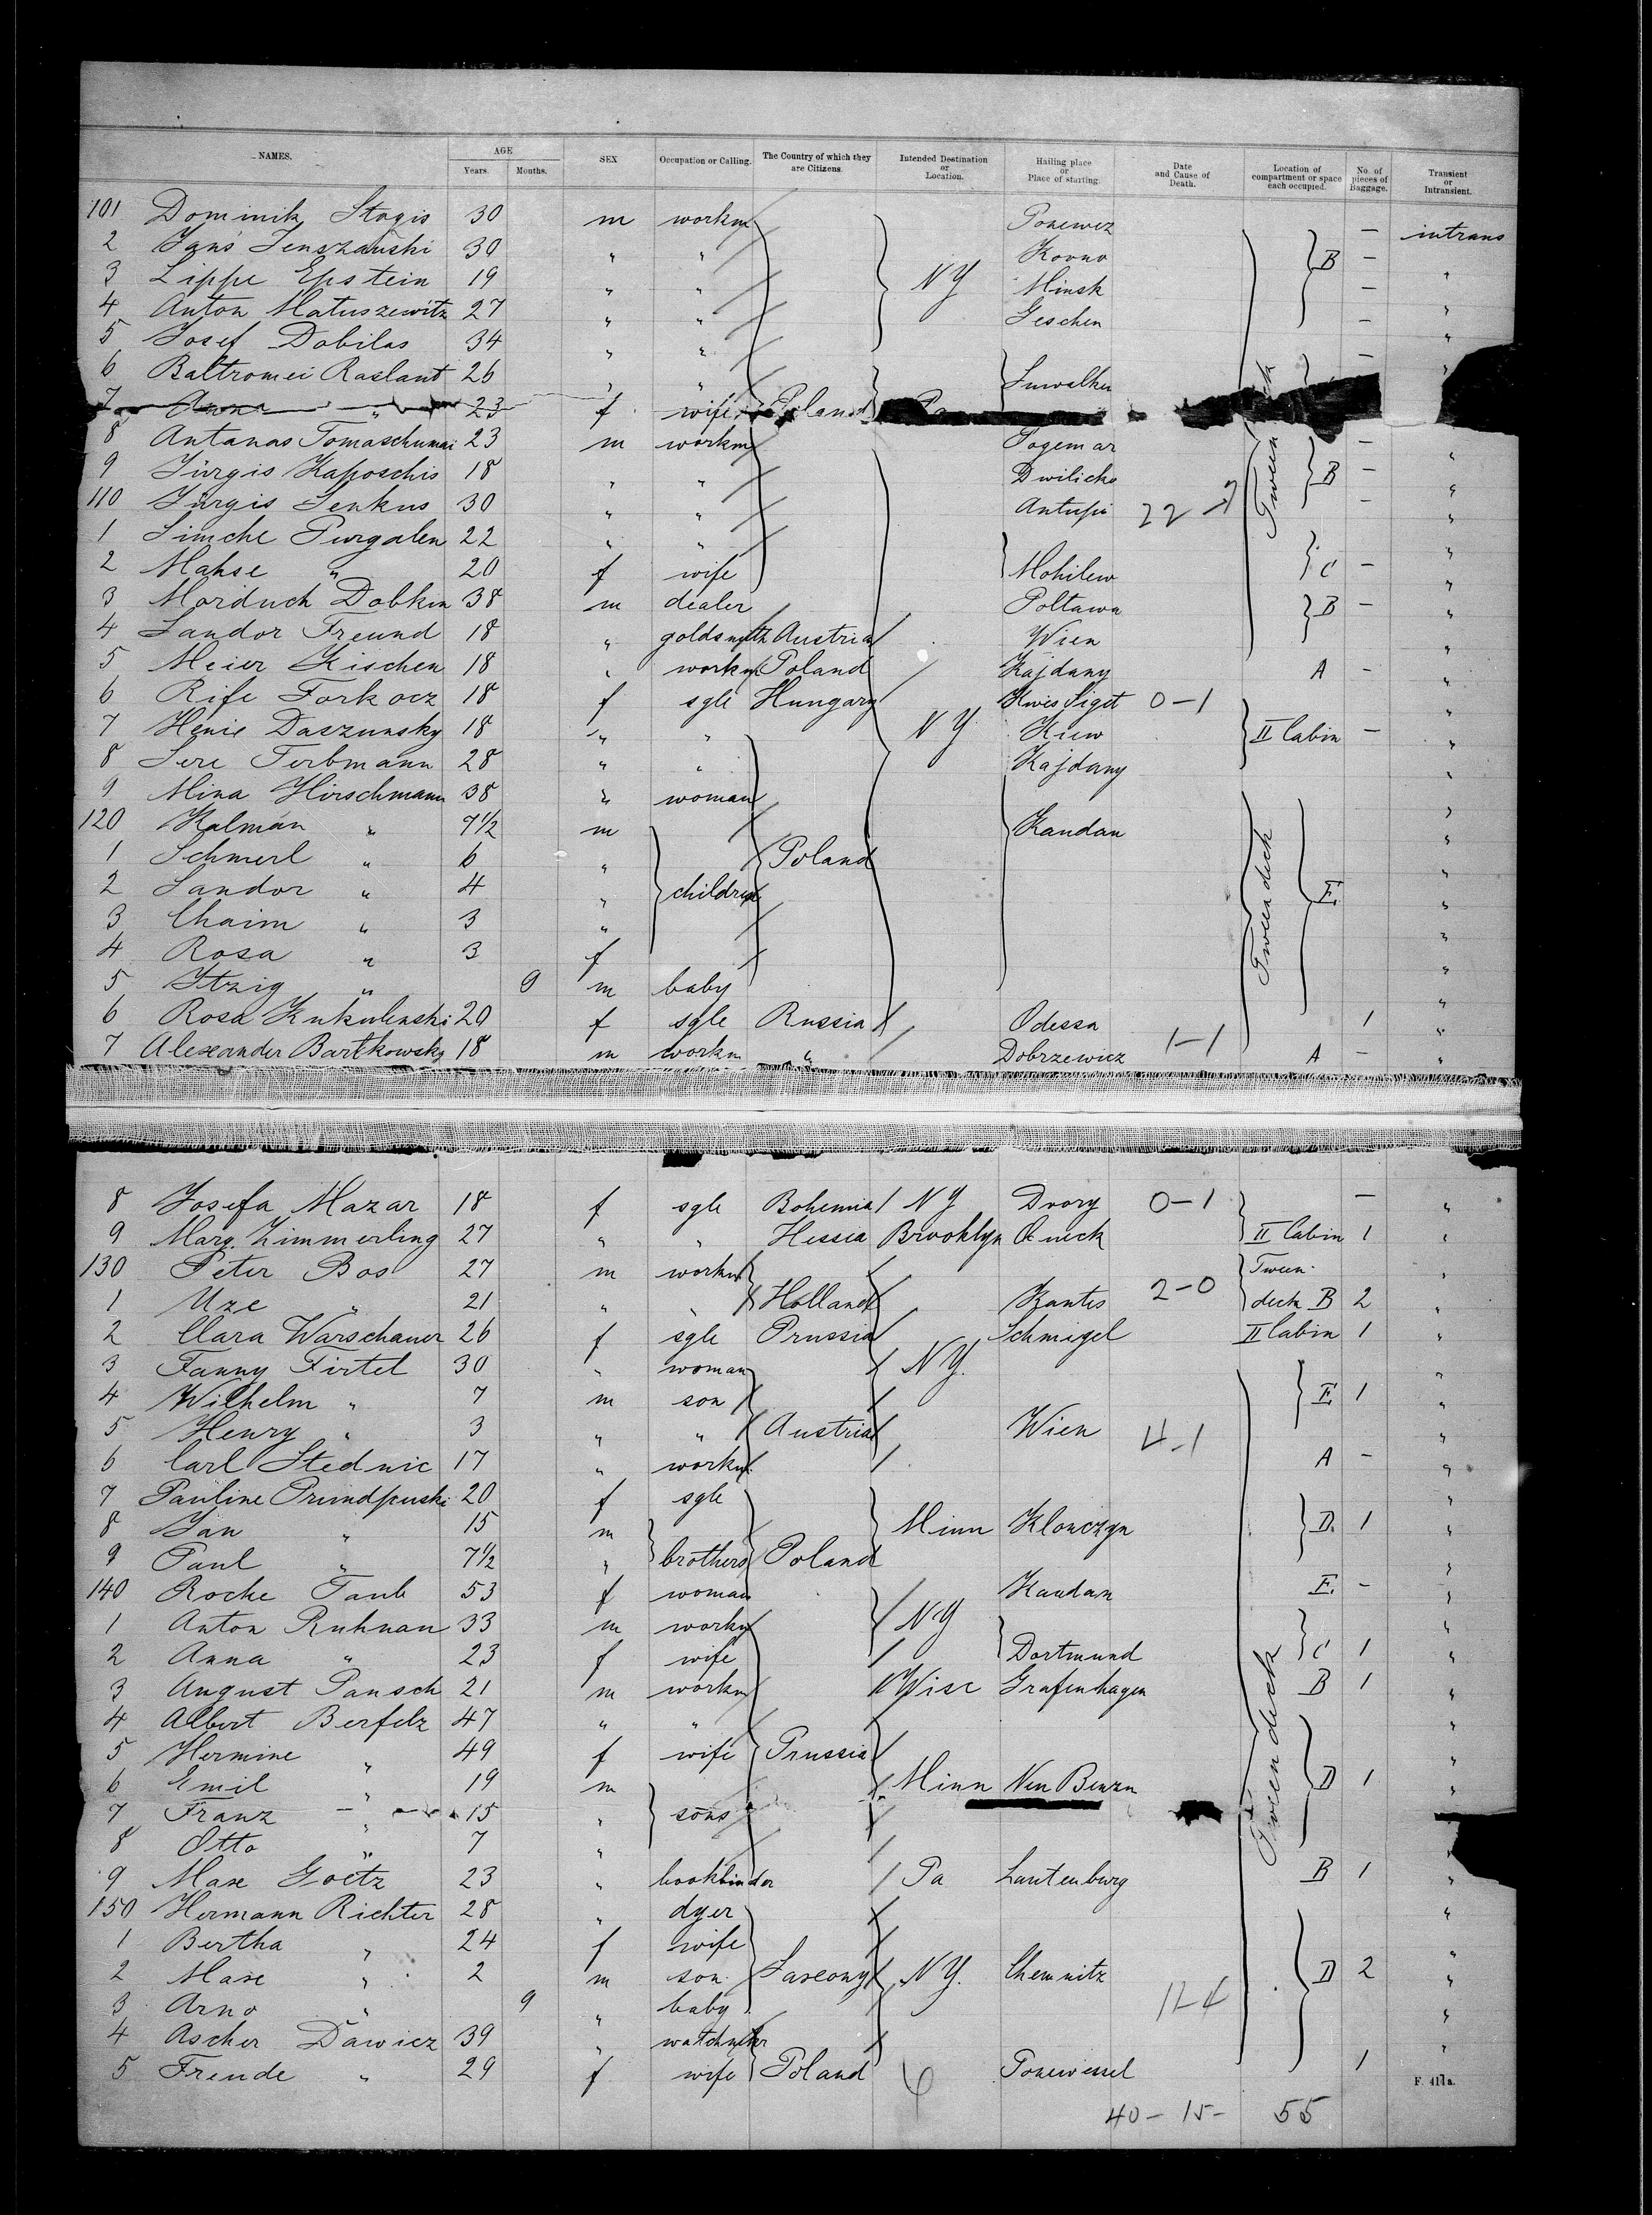 NAMES. AGE Years. Months. SEX Occupation or Calling. The Country of which they are Citizens. Intended Destination or Location. Hailing place or Place of starting. Date and Cause of Death. Location of compartment or space each occupied. No. of pieces of Baggage. Transient or Intransient.
101 Dominik Stagis 30 m workm Ponewez — intrans
2 Jans 30 " " Kovno B — "
3 Lippe Epstein 19 " " NY Minsk — "
4 Anton Matuszewitz 27 " " Geschen — "
5 Josef Dobilas 34 " " — "
6 Baltromei Raslant 26 " " Suwalken "
7 Anna " 23 f wife Poland Pa
8 Antanas 23 m workm Pogemar — "
9 Jürgis Kaposchis 18 " " Dwilicks B — "
110 Jürgis Senkus 30 " " 22 — "
1 Simche Purgalen 22 " " "
2 Mahse " 20 f wife Mohilew C — "
3 Morduch Dobkin 38 m dealer Poltawa B — "
4 Sandor Freund 18 " goldsmith Austria Wien "
5 Meier Kischen 18 " workm Poland Kajdany A — "
6 Rife Forkocz 18 f sgle Hungary 0–1 "
7 Henie Daszunsky 18 " " NY Kiew II Cabin — "
8 Sere Ferbmann 28 " " Kajdany "
9 Mina Hirschmann 38 " woman "
120 Kalman " 7½ m Kandan "
1 Schmerl " 6 " Poland "
2 Sandor " 4 " children Tween deck E. "
3 Chaim " 3 " "
4 Rosa " 3 f "
5 Itzig " 9 m baby "
6 Rosa Kukulenski 20 f sgle Russia Odessa 1 "
7 Alexander Bartkowsky 18 m workm " Dobrzewicz 1–1 A — "
8 Josefa Mazar 18 f sgle Bohemia NY Dvory 0–1 — "
9 Marg. Zimmerling 27 " " Hessia Brooklyn II Cabin 1 "
130 Peter Bos 27 m workm Tween- "
1 Uze " 21 " " Holland Kantes 2–0 deck B 2 "
2 Clara Warschauer 26 f sgle Prussia Schmigel II Cabin 1 "
3 Fanny Firtel 30 " woman NY. "
4 Wilhelm " 7 m son E 1 "
5 Henry " 3 " " Austria Wien 4–1 "
6 Carl Stednic 17 " workm A — "
7 Pauline 20 f sgle "
8 Jan " 15 m Minn Klonczyn D. 1 "
9 Paul " 7½ " brothers Poland "
140 Roche Taub 53 f woman Kandan E. — "
1 Anton Ruhnau 33 m workm NY "
2 Anna " 23 f wife Dortmund C 1 "
3 August Pansch 21 m workm Wisc Grafenhagen B 1 "
4 Albert Berfelz 47 " " "
5 Hermine " 49 f wife Prussia Tween deck "
6 Emil " 19 m Minn Neu Benzn D 1 "
7 Franz " 15 " sons
8 Otto " 7 " "
9 Max Goetz 23 " bookbinder Pa Lautenburg B 1 "
150 Hermann Richter 28 " dyer "
1 Bertha " 24 f wife "
2 Max " 2 m son Saxony NY. Chemnitz D 2 "
3 Arno " 9 " baby "
4 Ascher Dawicz 39 " watchmker "
5 Freude " 29 f wife Poland Ponewessel 1
F. 417a.
40 – 15 – 55